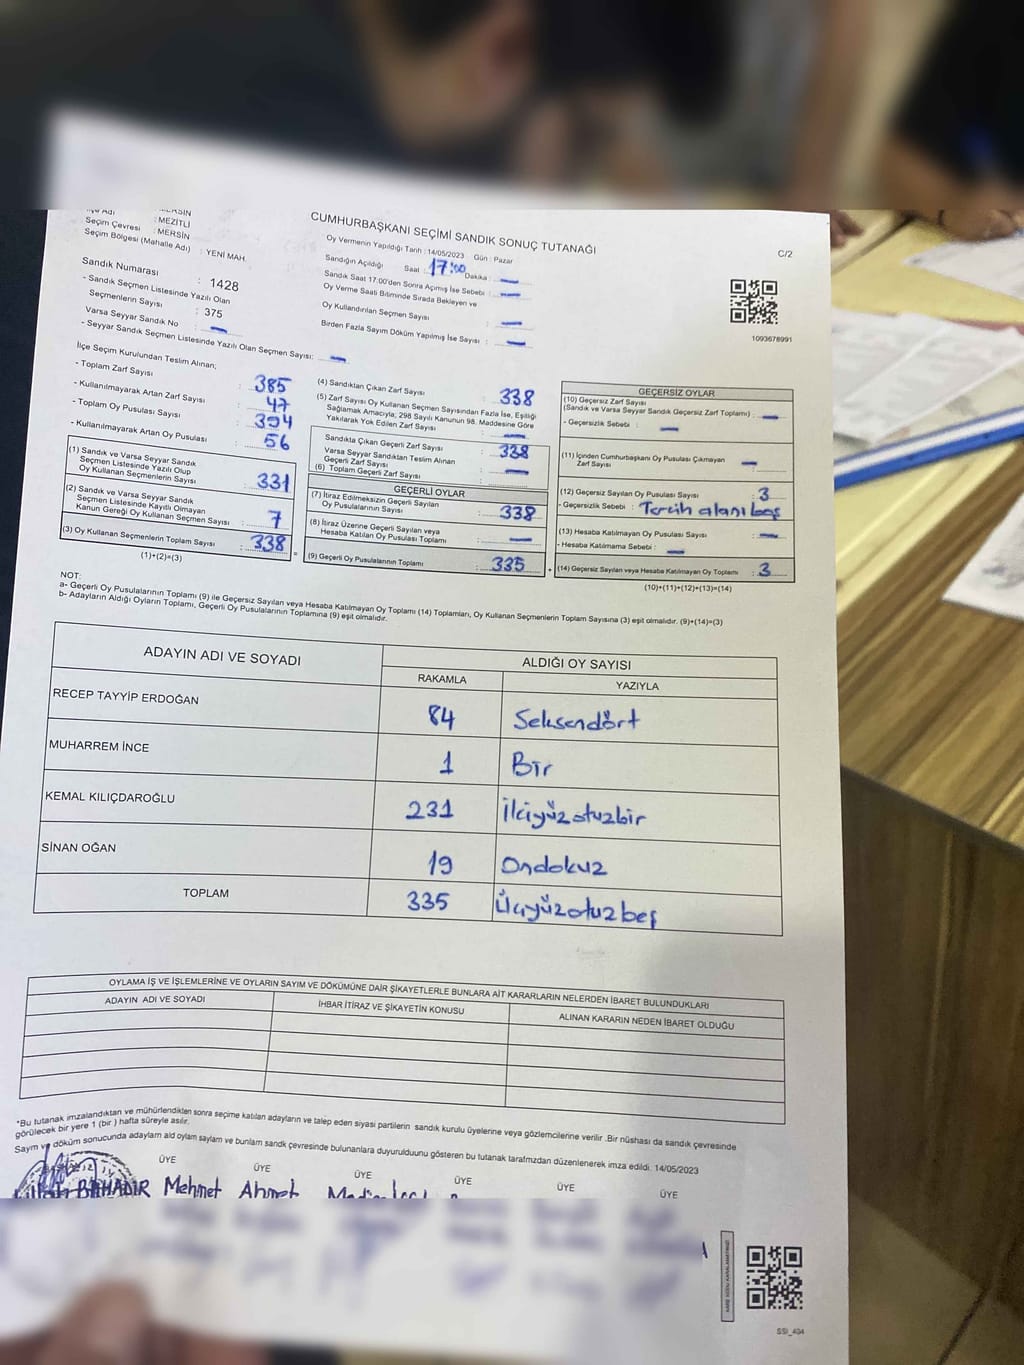 CUMHURBAŞKANI SEÇİMİ SANDIK SONUÇ TUTANAĞI
C/2
İlçe Adı : MEZİTLİ
Seçim Çevresi : MERSİN
Seçim Bölgesi (Mahalle Adı) : YENİ MAH.
Sandık Numarası : 1428
- Sandık Seçmen Listesinde Yazılı Olan
Seçmenlerin Sayısı : 375
Varsa Seyyar Sandık No : —
- Seyyar Sandık Seçmen Listesinde Yazılı Olan Seçmen Sayısı: —
Oy Vermenin Yapıldığı Tarih : 14/05/2023 Gün : Pazar
Sandığın Açıldığı Saat : 17:00 Dakika : —
Sandık Saat 17.00'den Sonra Açılmış İse Sebebi : —
Oy Verme Saati Bitiminde Sırada Bekleyen ve
Oy Kullandırılan Seçmen Sayısı : —
Birden Fazla Sayım Döküm Yapılmış İse Sayısı : —
1093678991
İlçe Seçim Kurulundan Teslim Alınan;
- Toplam Zarf Sayısı : 385
- Kullanılmayarak Artan Zarf Sayısı : 47
- Toplam Oy Pusulası Sayısı : 394
- Kullanılmayarak Artan Oy Pusulası : 56
(1) Sandık ve Varsa Seyyar Sandık
Seçmen Listesinde Yazılı Olup
Oy Kullanan Seçmenlerin Sayısı : 331
(2) Sandık ve Varsa Seyyar Sandık
Seçmen Listesinde Kayıtlı Olmayan
Kanun Gereği Oy Kullanan Seçmen Sayısı : 7
(3) Oy Kullanan Seçmenlerin Toplam Sayısı : 338
(1)+(2)=(3)
(4) Sandıktan Çıkan Zarf Sayısı : 338
(5) Zarf Sayısı Oy Kullanan Seçmen Sayısından Fazla İse, Eşitliği
Sağlamak Amacıyla; 298 Sayılı Kanunun 98. Maddesine Göre
Yakılarak Yok Edilen Zarf Sayısı : —
Sandıkta Çıkan Geçerli Zarf Sayısı : 338
Varsa Seyyar Sandıktan Teslim Alınan
Geçerli Zarf Sayısı : —
(6) Toplam Geçerli Zarf Sayısı :
GEÇERLİ OYLAR
(7) İtiraz Edilmeksizin Geçerli Sayılan
Oy Pusulalarının Sayısı : 338
(8) İtiraz Üzerine Geçerli Sayılan veya
Hesaba Katılan Oy Pusulası Toplamı : —
(9) Geçerli Oy Pusulalarının Toplamı : 335
GEÇERSİZ OYLAR
(10) Geçersiz Zarf Sayısı
(Sandık ve Varsa Seyyar Sandık Geçersiz Zarf Toplamı) : —
- Geçersizlik Sebebi : —
(11) İçinden Cumhurbaşkanı Oy Pusulası Çıkmayan
Zarf Sayısı : —
(12) Geçersiz Sayılan Oy Pusulası Sayısı : 3
- Geçersizlik Sebebi : Tercih alanı boş
(13) Hesaba Katılmayan Oy Pusulası Sayısı : —
- Hesaba Katılmama Sebebi : —
(14) Geçersiz Sayılan veya Hesaba Katılmayan Oy Toplamı : 3
(10)+(11)+(12)+(13)=(14)
NOT:
a- Geçerli Oy Pusulalarının Toplamı (9) ile Geçersiz Sayılan veya Hesaba Katılmayan Oy Toplamı (14) Toplamları, Oy Kullanan Seçmenlerin Toplam Sayısına (3) eşit olmalıdır. (9)+(14)=(3)
b- Adayların Aldığı Oyların Toplamı, Geçerli Oy Pusulalarının Toplamına (9) eşit olmalıdır.
ADAYIN ADI VE SOYADI ALDIĞI OY SAYISI
RAKAMLA YAZIYLA
RECEP TAYYİP ERDOĞAN 84 Seksendört
MUHARREM İNCE 1 Bir
KEMAL KILIÇDAROĞLU 231 İkiyüzotuzbir
SİNAN OĞAN 19 Ondokuz
TOPLAM 335 Üçyüzotuzbeş
OYLAMA İŞ VE İŞLEMLERİNE VE OYLARIN SAYIM VE DÖKÜMÜNE DAİR ŞİKAYETLERLE BUNLARA AİT KARARLARIN NELERDEN İBARET BULUNDUKLARI
ADAYIN ADI VE SOYADI İHBAR İTİRAZ VE ŞİKAYETİN KONUSU ALINAN KARARIN NEDEN İBARET OLDUĞU
*Bu tutanak imzalandıktan ve mühürlendikten sonra seçime katılan adayların ve talep eden siyasi partilerin sandık kurulu üyelerine veya gözlemcilerine verilir .Bir nüshası da sandık çevresinde
görülecek bir yere 1 (bir ) hafta süreyle asılır.
Sayım ve döküm sonucunda adayların ald oyların sayları ve bunların sandk çevresinde bulunanlara duyurulduunu gösteren bu tutanak tarafmzdan düzenlenerek imza edildi. 14/05/2023
ÜYE ÜYE ÜYE ÜYE ÜYE ÜYE
BAHADIR Mehmet Ahmet
SSI_494